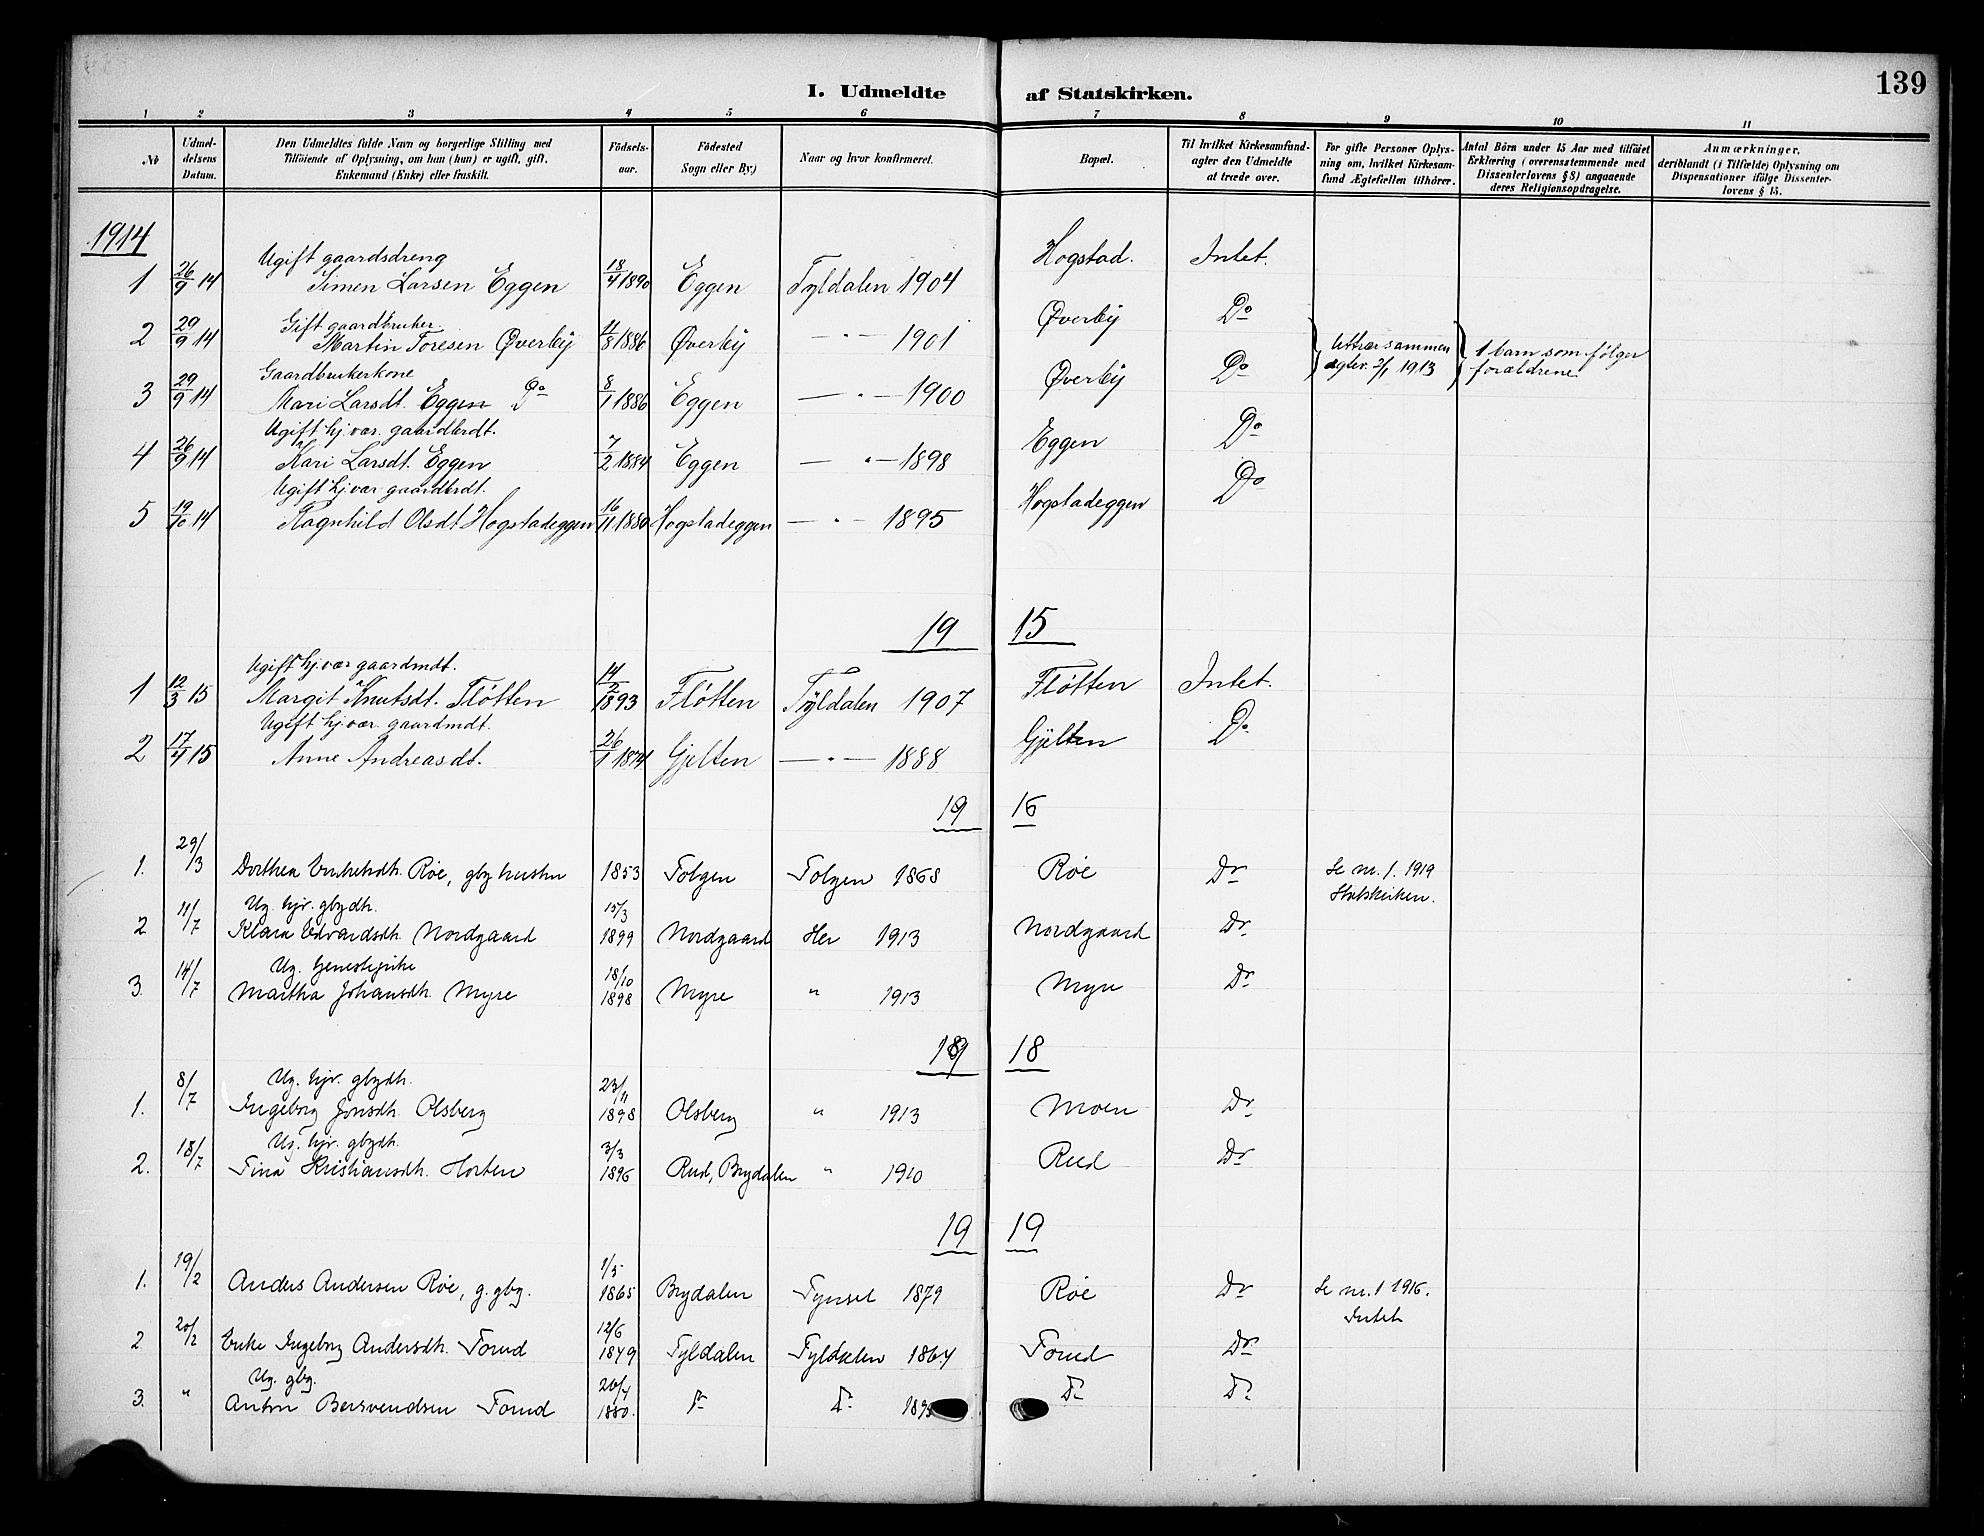 139
I. Udmeldte af Statskirken.
1 2 3 4 5 6 7 8 9 10 11
No
Udmeldelsens Datum.
Den Udmeldtes fulde Navn og borgerlige Stilling med
Tilføiende af Oplysning, om han (hun) er ugift, gift,
Enkemand (Enke) eller fraskilt.
Fødselsaar.
Fødested
Sogn eller By.)
Naar og hvor konfirmeret.
Bopæl.
Til hvilket Kirkesamfund
agter den Udmeldte
at træde over.
For gifte Personer Oplysning om, hvilket Kirkesamfund Ægtefællen tilhører.
Antal Børn under 15 Aar med tilføiet
Erklæring (overensstemmende med
Dissenterlovens § 8) angaaende
deres Religionsopdragelse.
Anmærkninger,
deriblandt (i Tilfælde) Oplysning om
Dispensationer ifølge Dissenterlovens § 15.
1914
Ugift gaardsdreng
1 26/9 14 Simen Larsen Eggen 18/4 1890 Eggen Tyldalen 1904 Hogstad. Intet.
Gift gaardbruker.
2 29/9 14 Martin Toresen Øverby 4/8 1886 Øverby — " — 1901 Øverby Do
Uttræ sammen
egtev. 2/1 1913
1 barn som følger
forældrene.
Gaardbrukerkone
3 29/9 14 Mari Larsdt. Eggen Do 8/1 1886 Eggen — " — 1900 Øverby Do
Ugift hj. vær. gaardbrdt.
4 26/9 14 Kari Larsdt. Eggen 7/2 1884 Eggen — " — 1898 Eggen Do
Ugift hj. vær gaardbrdt.
5 19/10 14 Ragnhild Olsdt Hogstadeggen 16/11 1880 Hogstadeggen — " — 1895 Hogstadeggen Do
19 15
Ugift hj. vær gaardmdt.
1 12/3 15 Margit Knutsdt. Fløtten 14/2 1893 Fløtten Tyldalen 1907 Fløtten Intet.
Ugift hj. vær. gaardmdt.
2 17/4 15 Anne Andreasdt. 26/1 1874 Gjelten — " — 1888 Gjelten Do
19 16
1. 29/3 Dorthea Røe, gbr hustru 1853 Tolgen Tolgen 1868 Røe Do Se nr. 1. 1919
Statskirken.
Ug. hjv. gbrdtr.
2 11/7 Klara Edvardsdtr. Nordgaard 15/3 1899 Nordgaard Her 1913 Nordgaard Do
Ug. tjenestepike
3. 14/7 Martha Johansdtr. Myre 18/10 1898 Myre " 1913 Myre Do
19 18
Ug. hjv. gbrdtr.
1. 8/7 Ingeborg Jonsdtr. Olsberg 23/11 1898 Olsberg " 1913 Moen Do
Ug. hjv. gbrdtr.
2. 18/7 Tina Kristiansdtr. Horten 3/3 1896 Rud, Brydalen " 1910 Rud Do
19 19
1. 19/2 Anders Andersen Røe, g. gbr. 1/5 1865 Brydalen Tynset 1879 Røe Do Se nr. 1 1916.
Intet
2 20/2 Enke Ingeborg Andersdtr. Torud 12/6 1849 Tyldalen Tyldalen 1864 Torud Do
Ug. gbr.
3. " Anton Bersvendsen Torud 20/4 1880. Do Do Do Do